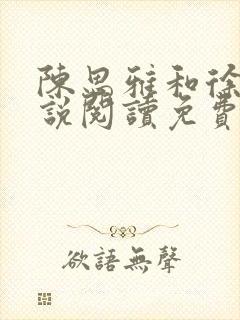 陳思雅和徐
說閱讀免費
欲語無聲